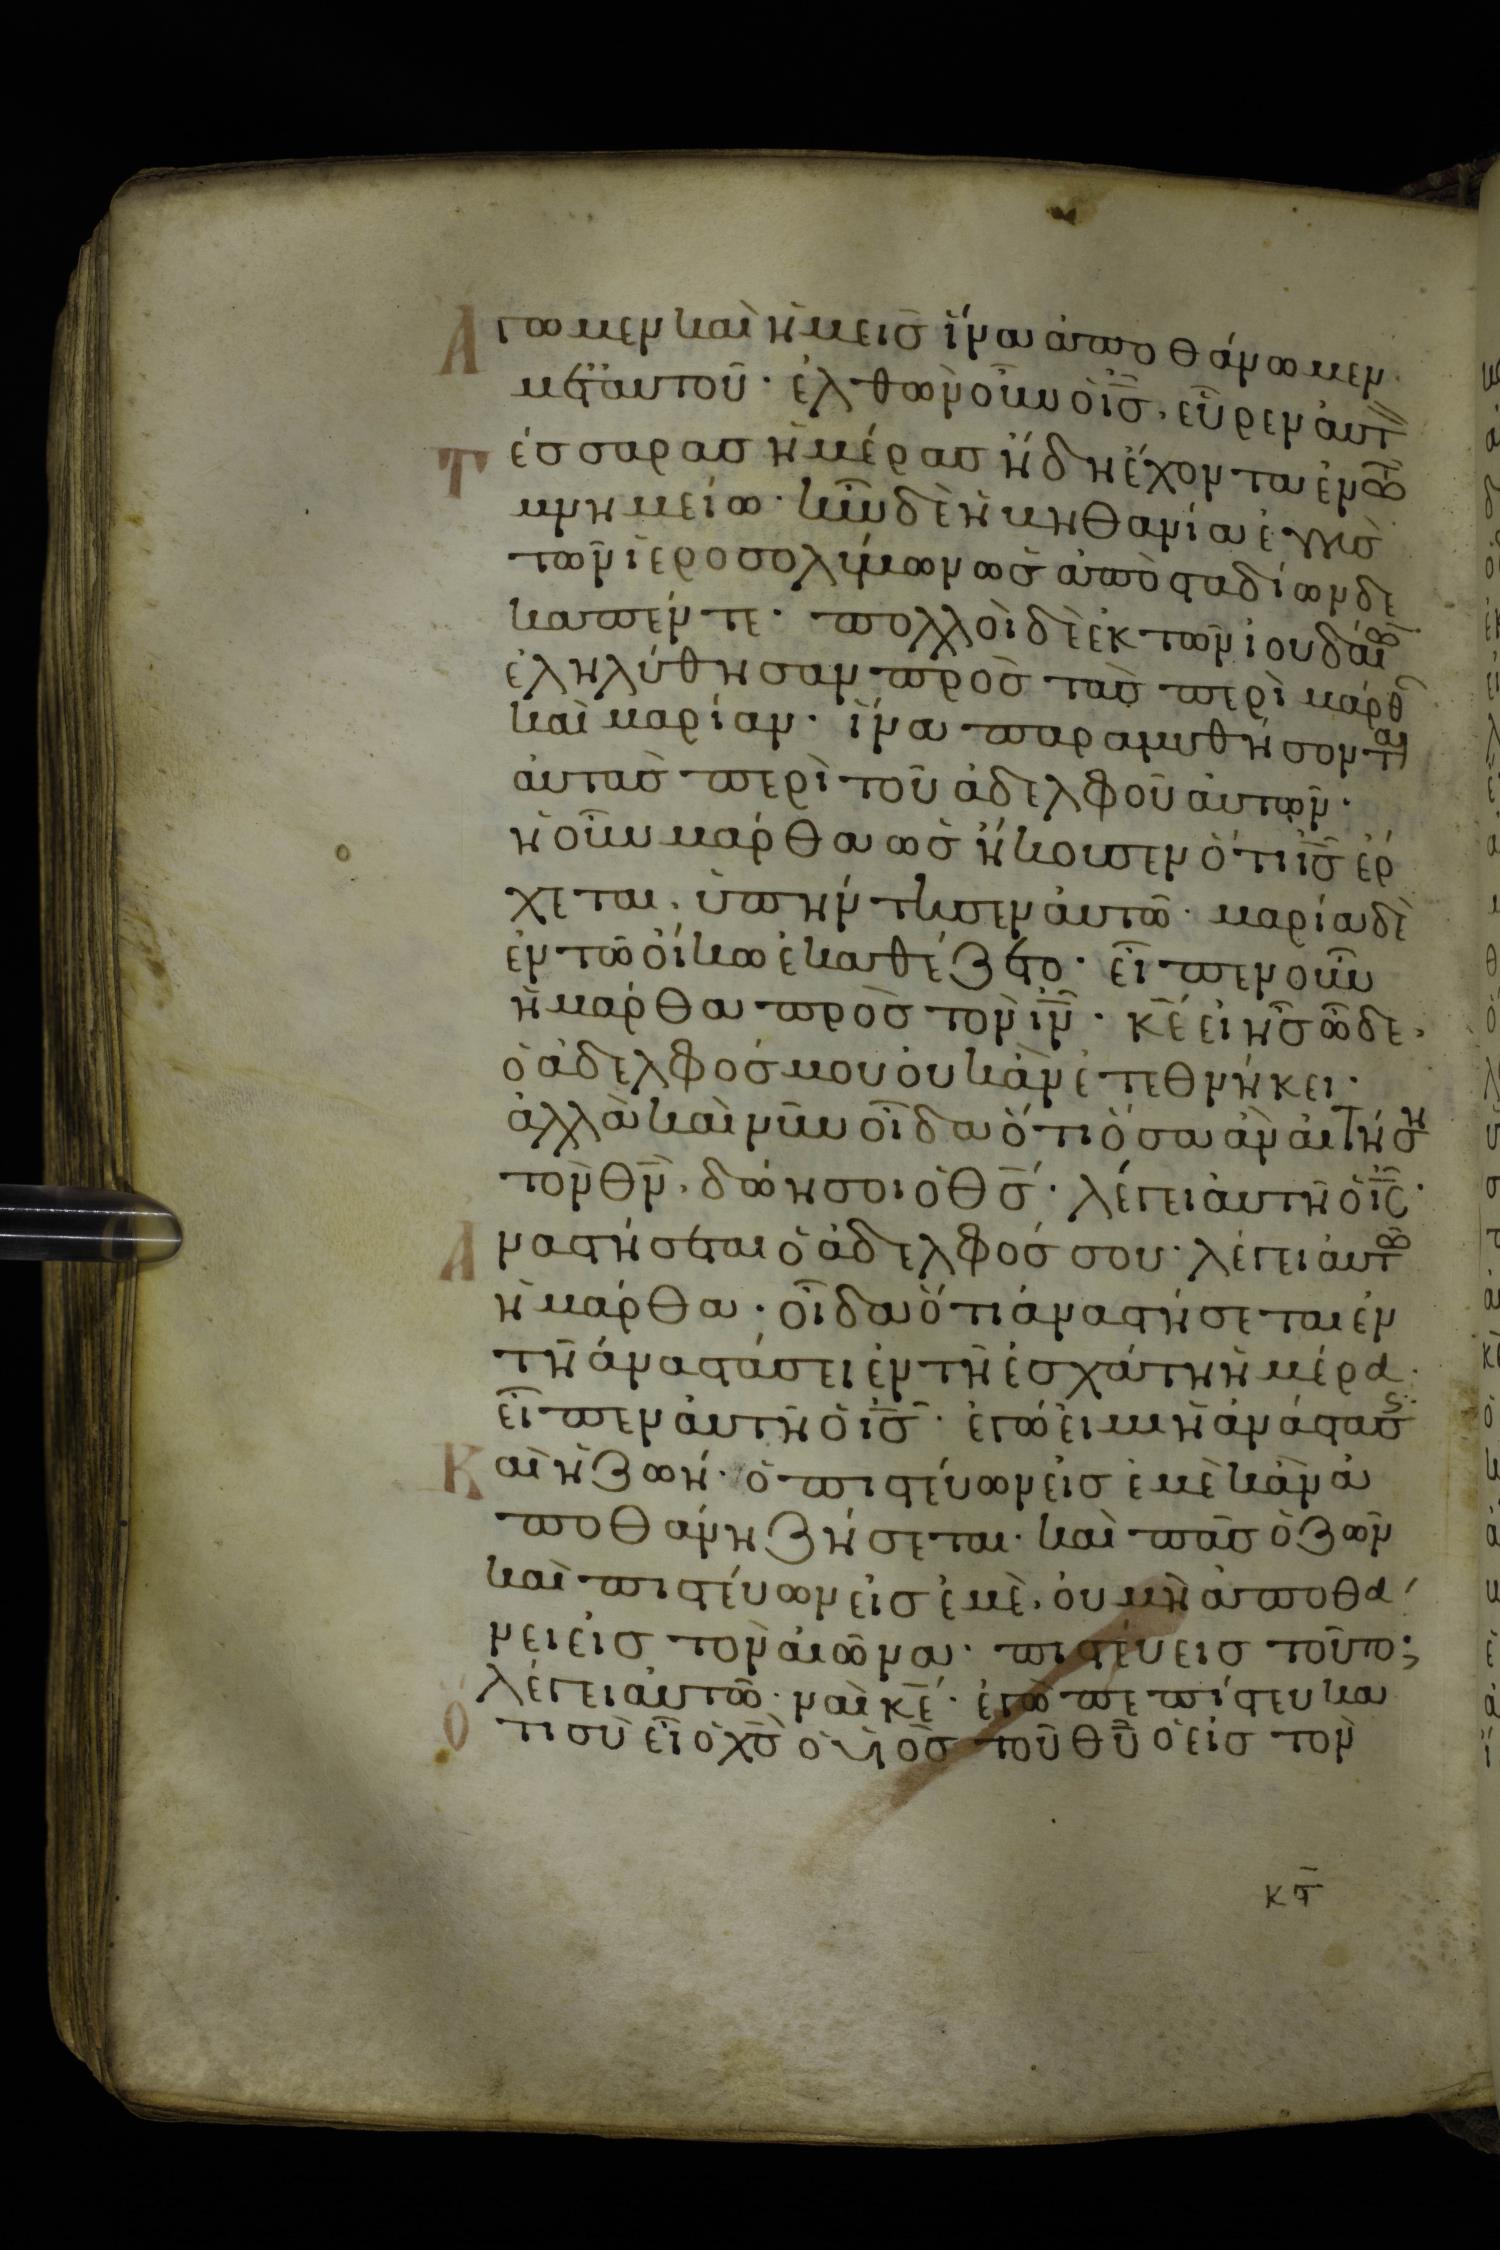 Ἄγωμεν καὶ ἡμεῖς ἵνα ἀποθάνωμεν
μετ' αυτοῦ· ἐλθὼν οὖν ὁ ι̅ς̅, εὗρεν ἀυτ
Τέσσαρας ἡμέρας ἤδη ἔχοντα ἐν τῶ
μνημείω· ἦν δὲ ἡ βηθανία ἐγγὺς
τῶν ἱεροσολύμων ὡς ἀπὸ σταδίων δε
καπέντε· πολλοὶ δὲ ἐκ τῶν ἰουδαίω
ἐληλύθησαν πρὸς τὰς περὶ μάρθ
καὶ μαρίαν· ἵνα παραμυθήσονται
ἀυτὰς περὶ τοῦ ἀδελφοῦ ἀυτῶν·
ἡ οὖν μάρθα ὡς ἤκουσεν ὅτι ι̅ς̅ ἔρ
χεται, ὑπήντησεν ἀυτῶ· μαρία δὲ
ἐν τῶ οἴκω ἐκαθέζετο· εἶπεν οὖν
ἡ μάρθα πρὸς τὸν ι̅ν̅· κ̅ε̅ εἰ ἦς ὧδε,
ὁ ἀδελφός μου οὐκ ἂν ἐτεθνήκει·
ἀλλὰ καὶ νῦν οἶδα ὅτι ὅσα ἂν αἰτήση
τὸν θ̅ν̅, δώη σοι ὁ θ̅ς̅· λέγει ἀυτῆ ὁ ι̅ς̅·
Ἀναστήσεται ὁ ἀδελφός σου· λέγει ἀυτῶ
ἡ μάρθα· οἶδα ὅτι ἀναστήσεται ἐν
τῆ ἀναστάσει ἐν τῆ ἐσχάτη ἡμέρα·
εἶπεν ἀυτῆ ὁ ι̅ς̅· ἐγώ εἰμι ἡ ἀνάστασις
Καὶ ἡ ζωή· ὁ πιστεύων εἰς ἐμὲ κἂν ἀ
ποθάνη ζήσεται· καὶ πᾶς ὁ ζῶν
καὶ πιστεύων εἰς ἐμὲ, οὐ μὴ ἀποθά
νει εἰς τὸν αἰῶνα· πιστεύεις τοῦτο;
λέγει ἀυτῶ· ναὶ κ̅ε̅· ἐγὼ πεπίστευκα
Ὅτι σὺ εἶ ὁ χ̅ς̅ ὁ υἱὸς τοῦ θ̅υ̅ ὁ εἰς τὸν